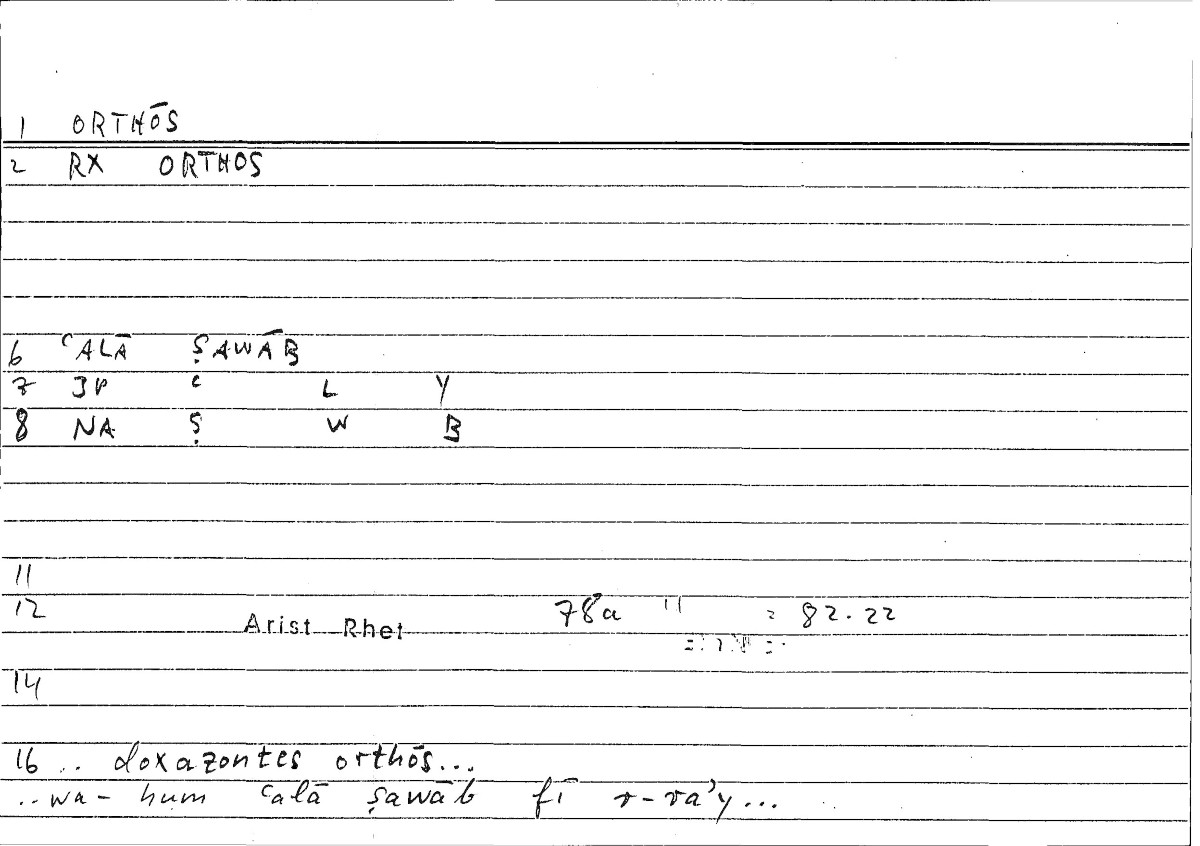 1 ORTHŌS
2 RX ORTHOS
6 ʿALĀ ṢAWĀB
7 JP ʿ L Y
8 NA Ṣ W B
11
12 Arist Rhet 78a 11 = 82.22
14
16 .. doxazontes orthōs...
..wa-hum ʿalā ṣawāb fī r-ra’y...